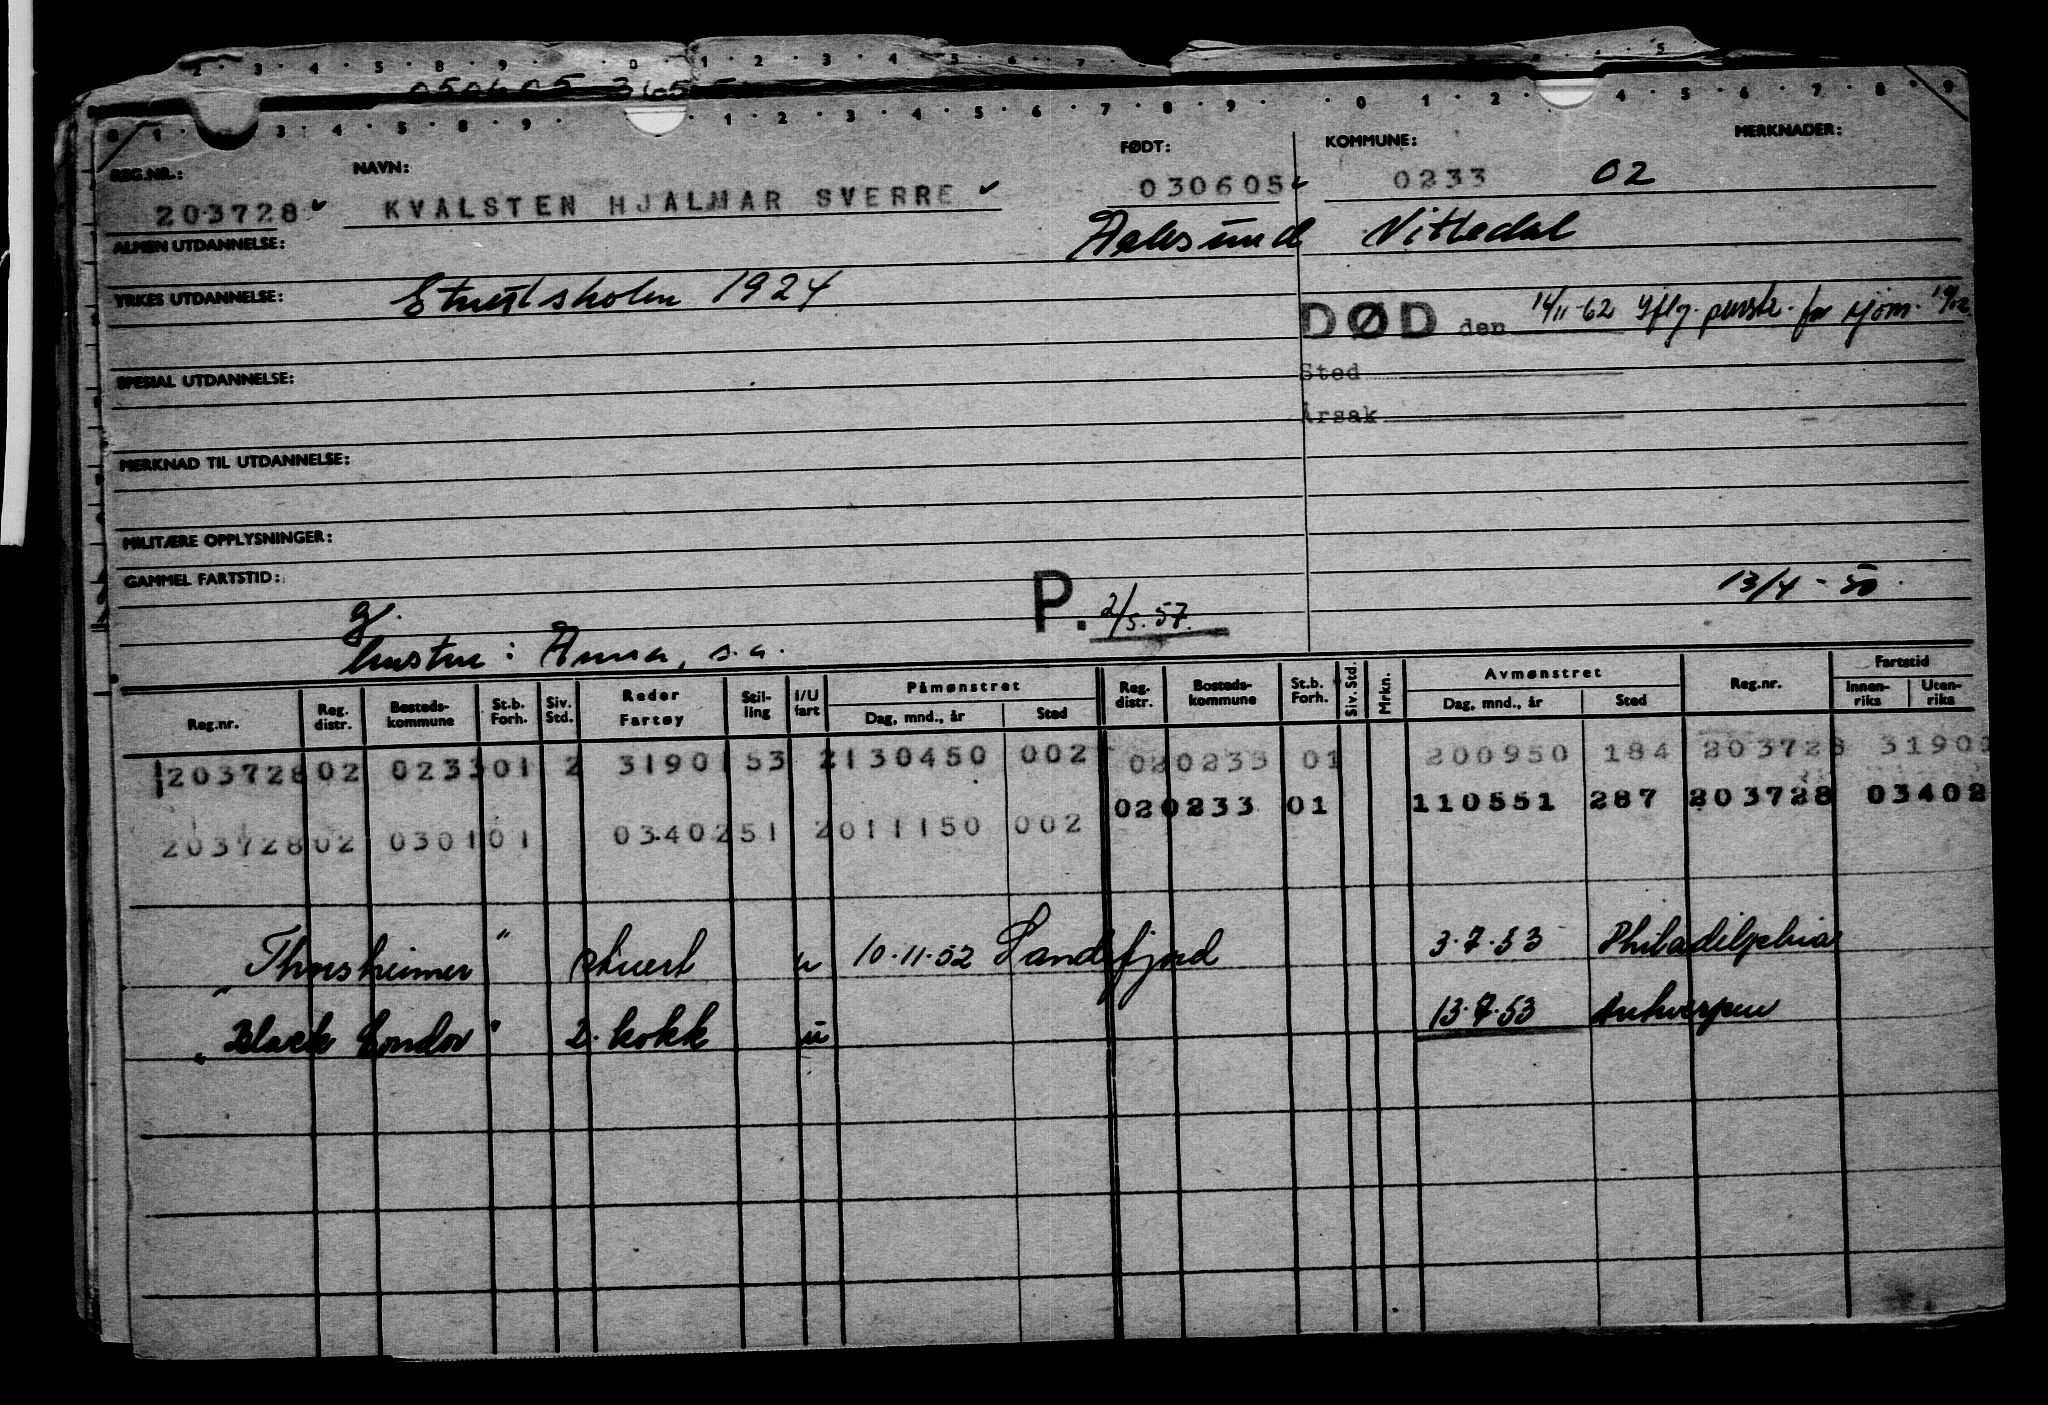 050605 365
REG.NR.: NAVN: FØDT: KOMMUNE: MERKNADER:
203728 KVALSTEN HJALMAR SVERRE 030605 0233 02
ALMEN UTDANNELSE: Aalesund Nittedal
YRKES UTDANNELSE: Stuertskolen 1924
DØD den 14/11-62 Iflg. persk. for sjøm. 19/12
SPESIAL UTDANNELSE:
Sted
Årsak
MERKNAD TIL UTDANNELSE:
MILITÆRE OPPLYSNINGER:
GAMMEL FARTSTID: 13/4-50.
g. P. 2/5.57.
hustru: Anna, s.a.
Reg.nr. Reg. distr. Bosteds-kommune St.b. Forh. Siv. Std. Reder Fartøy Stil-ling I/U fart Påmønstret Dag, mnd., år Sted Reg. distr. Bosteds-kommune St.b. Forh. Siv. Std. Mrkn. Avmønstret Dag, mnd., år Sted Reg.nr. Fartstid Innen-riks Uten-riks
203728 02 0233 01 2 31901 53 2 130450 002 02 0233 01 200950 184 203728 31901
02 0233 01 110551 287 203728 03402
203728 02 0301 01 03402 51 2 011150 002
"Thorsheimer" stuert u 10.11.52 Sandefjord 3.7.53 Philadelphia
"Black Condor" 2. kokk u 13.7.53 Antwerpen